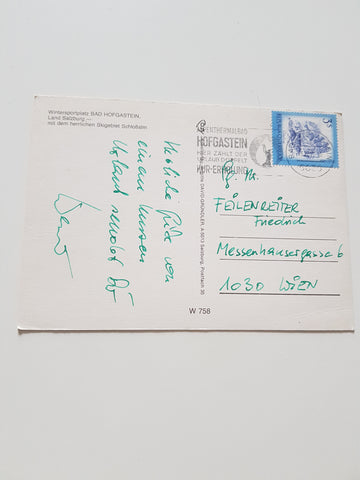 Wintersportplatz BAD HOFGASTEIN
Land Salzburg —
mit dem herrlichen Skigebiet Schloßalm
Herzliche Grüße von
einem kurzen
Urlaub sendet Dir
W 758
THERMALBAD
HOFGASTEIN
HIER ZÄHLT DER
URLAUB DOPPELT
KUR-ERHOLUNG
3
FEILENREITER
Friedrich
Messenhausergasse 6
1030 WIEN